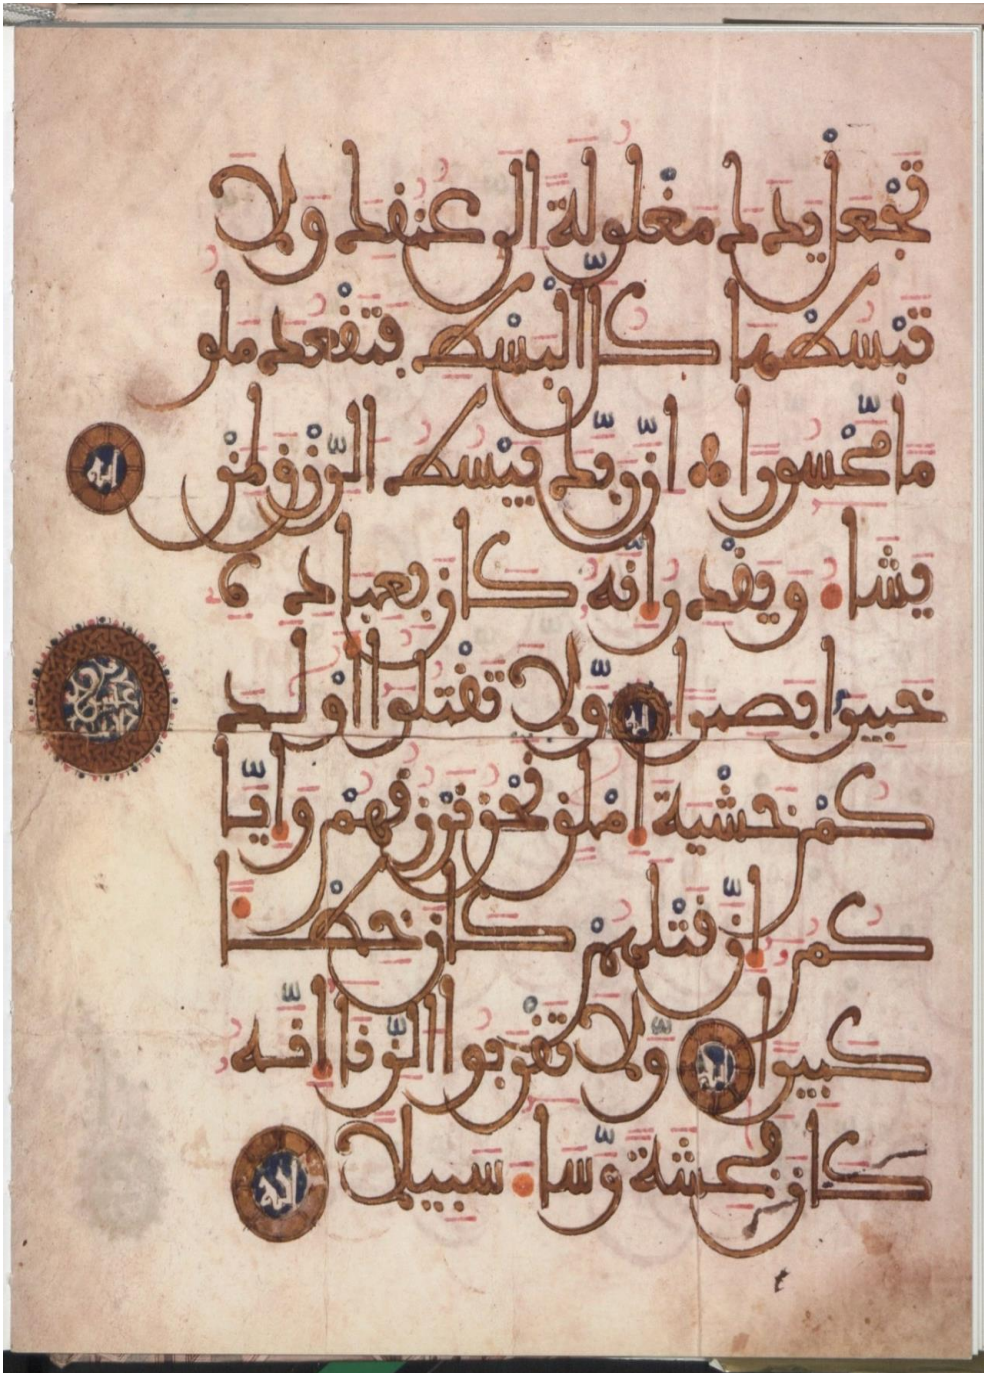 تجعل يدك مغلولة الى عنقك ولا
تبسطها كل البسط فتقعد ملو
ما محسورا ان ربك يبسط الرزق لمن
يشاء ويقدر انه كان بعباده
خبيرا بصيرا ولا تقتلوا اولد
كم خشية املق نحن نرزقهم وايا
كم ان قتلهم كان خطا
كبيرا ولا تقربوا الزنا انه
كان فحشة وساء سبيلا